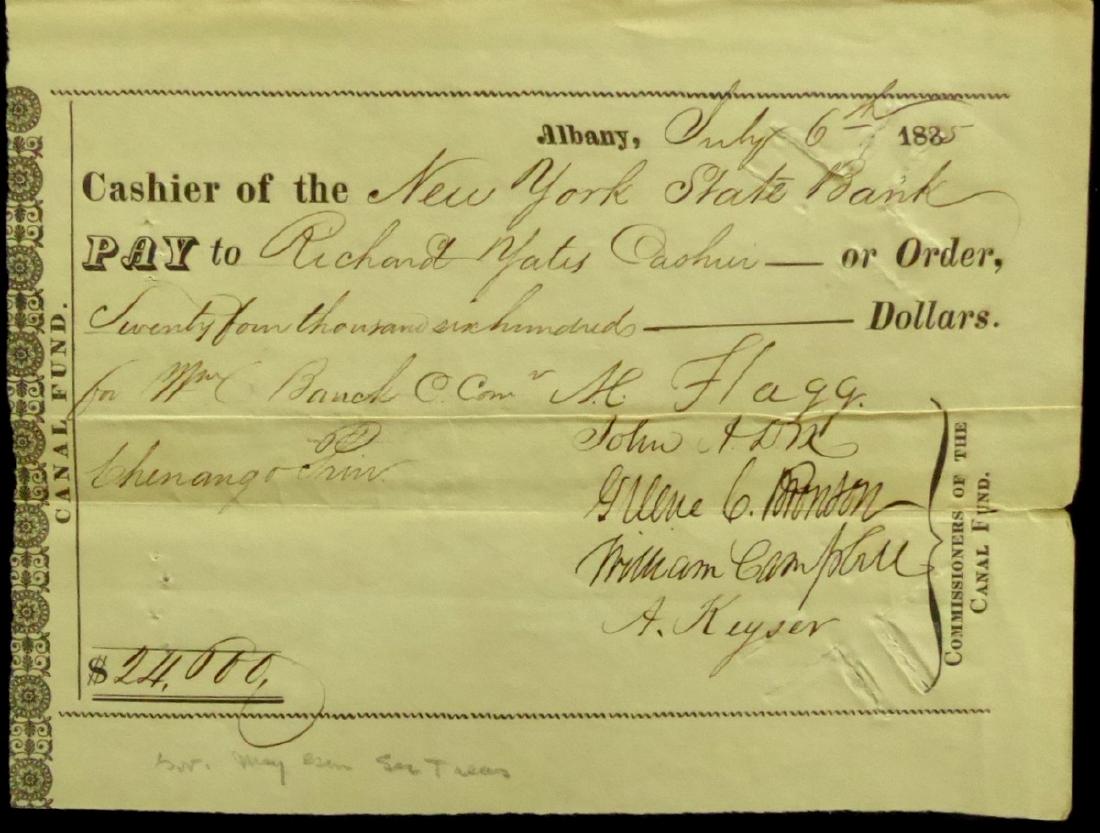 Albany, July 6th 1835
Cashier of the New York State Bank
PAY to Richard Yates Cashier — or Order,
Twenty four thousand six hundred — Dollars.
for Wm C Bouck C. Comr
A. C. Flagg.
Chenango
John A Dix
Greene C. Bronson
William Campbell
A. Keyser
$24,600,
CANAL FUND.
COMMISSIONERS OF THE
CANAL FUND.
Gov. May Gen Sec Treas